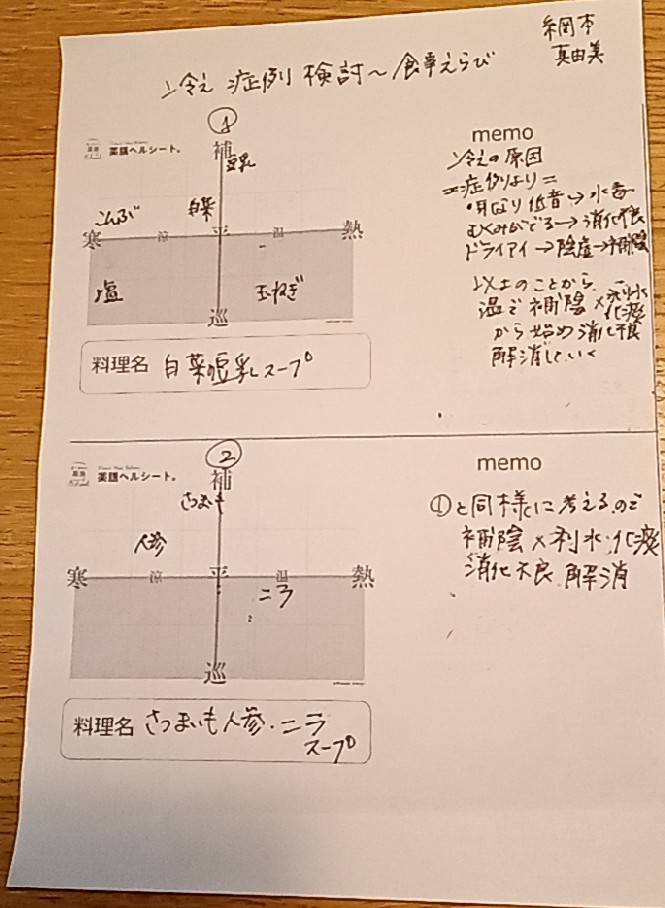 網本
真由美
冷え 症例 検討〜食事えらび
①
薬膳ヘルシート。
補
豆乳
こんぶ
白菜
寒 涼 平 温 熱
塩
玉ねぎ
巡
料理名 白菜の豆乳スープ
memo
冷えの原因
=症例より=
・耳なり低音→水毒
むくみがでる→消化不良
ドライアイ→陰虚→補陰
以上のことから
温で補陰×利水
化痰
から始め消化不良
解消していく
②
薬膳ヘルシート。
補
さつまいも
人参
寒 涼 平 温 熱
ニラ
2
巡
料理名 さつまいも人参・ニラ
スープ
memo
①と同様に考えるので
補陰×利水・化痰
消化不良 解消